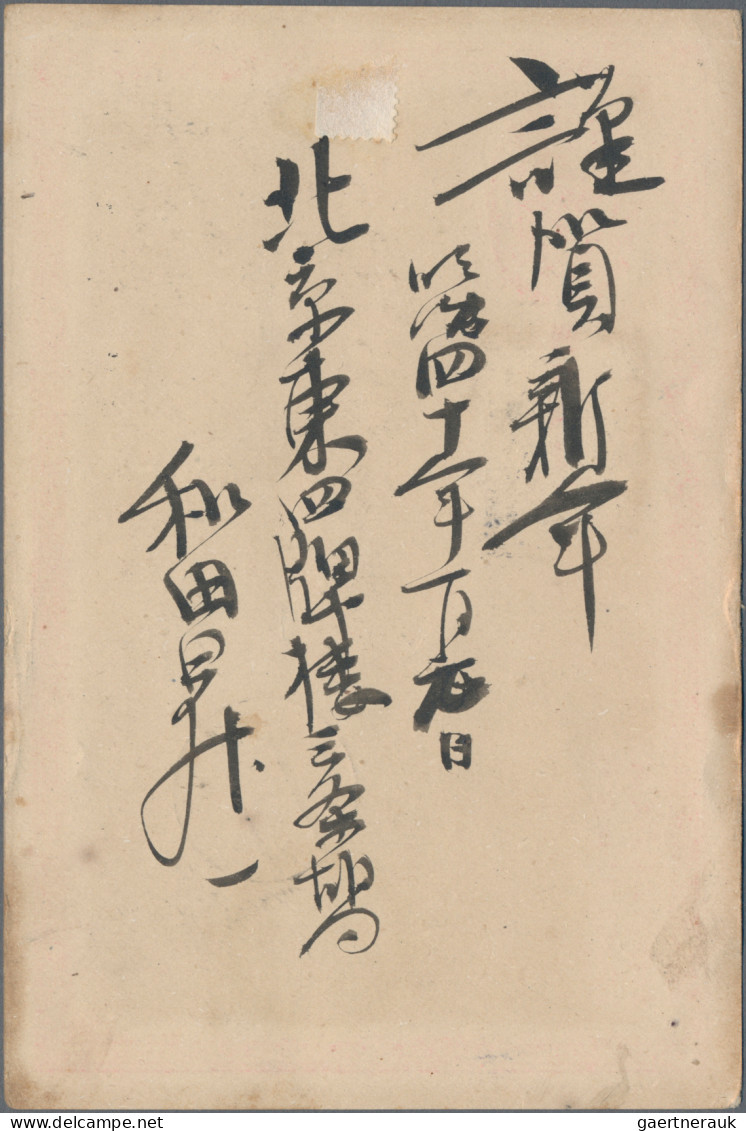 謹賀新年
明治四十年一月元日
北京東四牌楼三条胡同
和田昇一
gaertnerauk